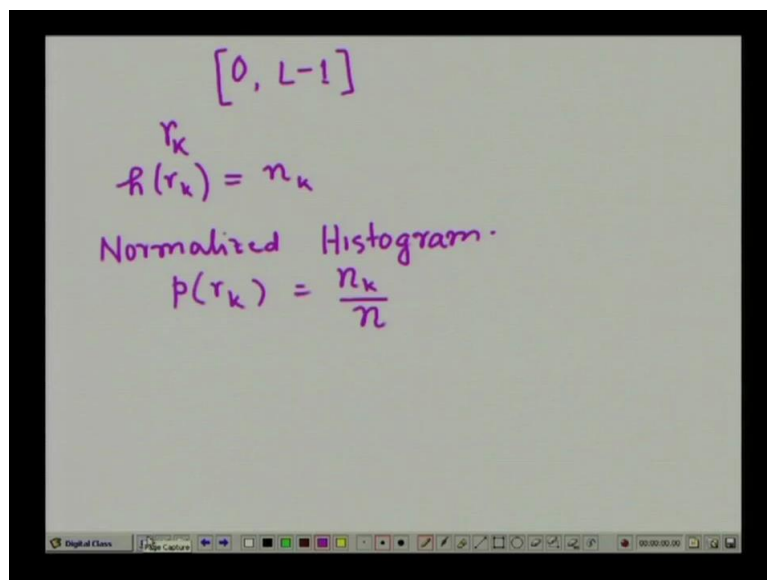 [0, L-1]
r_k
h(r_k) = n_k
Normalized Histogram.
p(r_k) = n_k / n
Digital Class
Page Capture
00:00:00.00